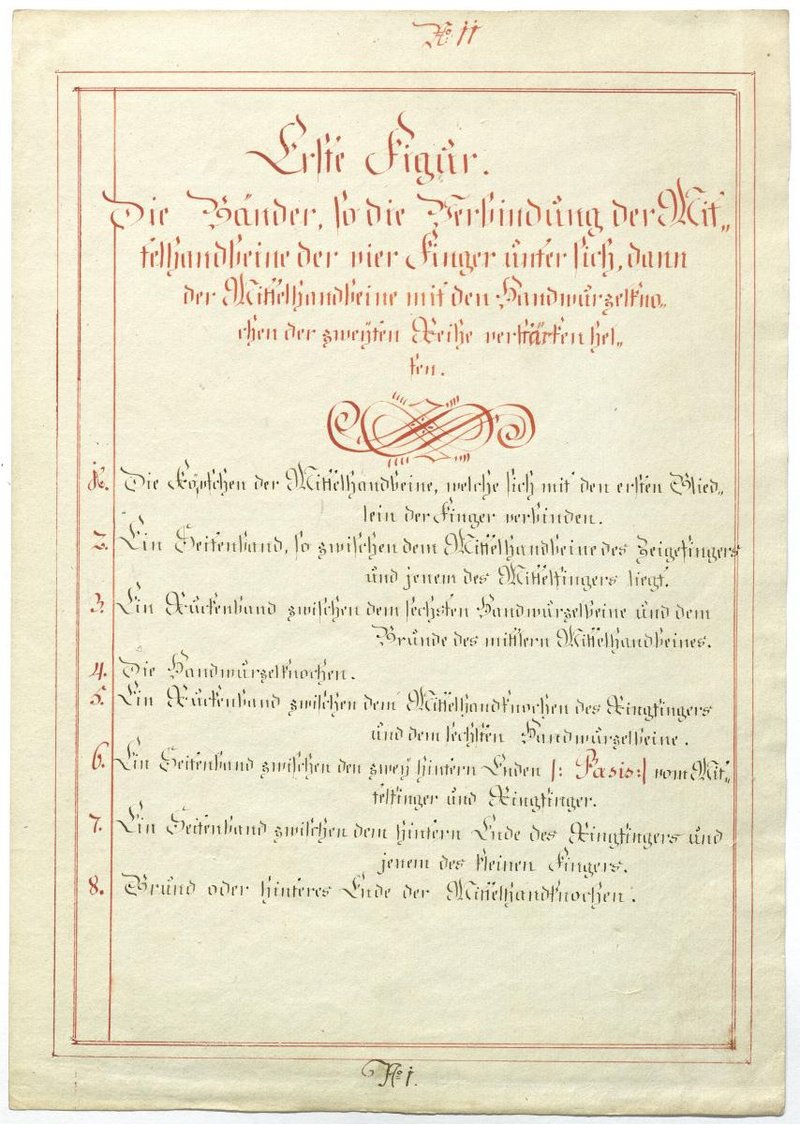 No 11
Erste Figur.
Die Bänder, so die Verbindung der Mit„
telhandbeine der vier Finger unter sich, dann
der Mittelhandbeine mit den Handwurzelkno„
chen der zweyten Reihe verstärken hel„
fen.
1. Die Köpfchen der Mittelhandbeine, welche sich mit den ersten Glied„
lein der Finger verbinden.
2. Ein Seitenband, so zwischen dem Mittelhandbeine des Zeigefingers
und jenem des Mittelfingers liegt.
3. Ein Rückenband zwischen dem sechsten Handwurzelbeine und dem
Grunde des mittlern Mittelhandbeines.
4. Die Handwurzelknochen.
5. Ein Rückenband zwischen dem Mittelhandknochen des Ringfingers
und dem sechsten Handwurzelbeine.
6. Ein Seitenband zwischen den zwey hintern Enden /: Basis :/ vom Mit„
telfinger und Ringfinger.
7. Ein Seitenband zwischen dem hintern Ende des Ringfingers und
jenem des kleinen Fingers.
8. Grund oder hinteres Ende der Mittelhandknochen.
No 1.